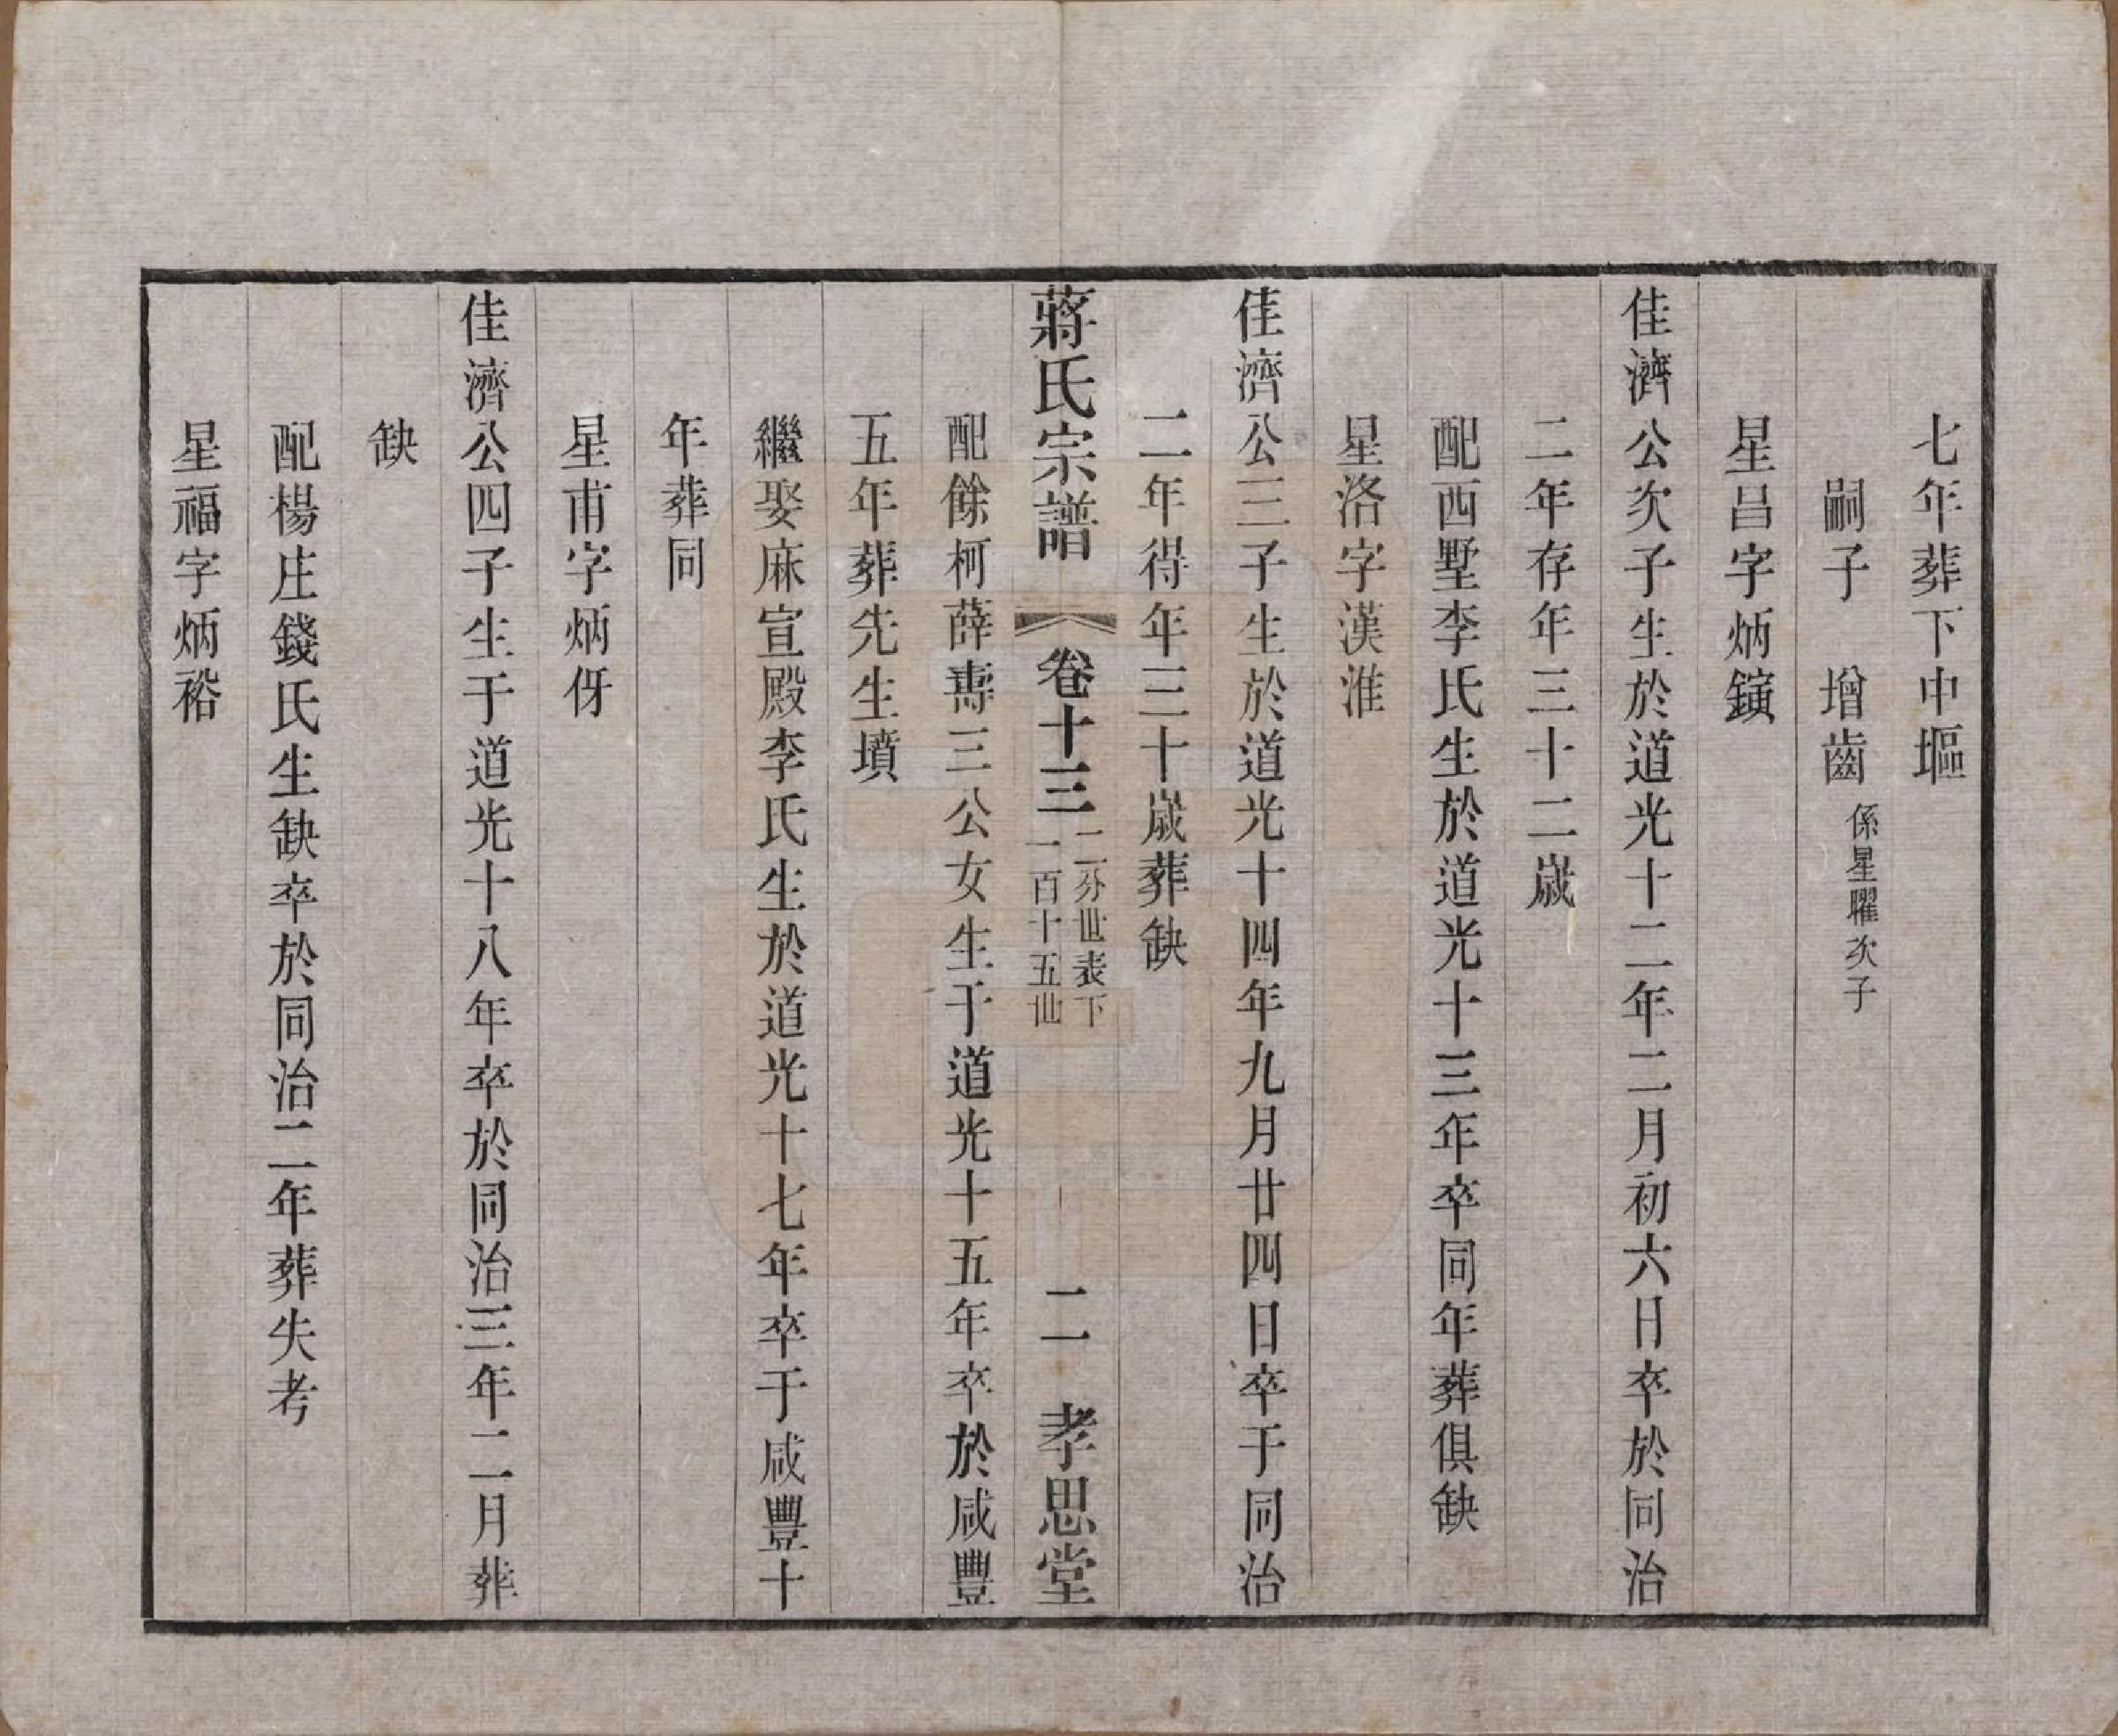 七年葬下中塸
嗣子 增齒 係星曜次子
星昌字炳鐄
佳濟公次子生於道光十二年二月初六日卒於同治
二年存年三十二歲
配西墅李氏生於道光十三年卒同年葬俱缺
星洛字漢淮
佳濟公三子生於道光十四年九月廿四日卒于同治
二年得年三十歲葬缺
蔣氏宗譜 卷十三 二分世表下 一百十五世 二 孝思堂
配餘柯薛壽三公女生于道光十五年卒於咸豐
五年葬先生墳
繼娶麻宣殿李氏生於道光十七年卒于咸豐十
年葬同
星甫字炳伢
佳濟公四子生于道光十八年卒於同治三年二月葬
缺
配楊庄錢氏生缺卒於同治二年葬失考
星福字炳裕